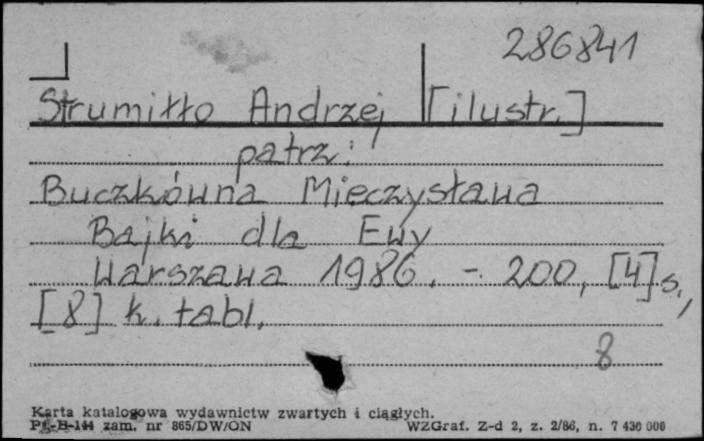 286841
Strumiłło Andrzej [ilustr.]
patrz:
Buczkówna Mieczysława
Bajki dla Ewy
Warszawa 1986. - 200, [4] s.,
[8] k. tabl.
8
Karta katalogowa wydawnictw zwartych i ciągłych.
Pf-H-144 zam. nr 865/DW/ON WZGraf. Z-d 2, z. 2/86, n. 7 430 000